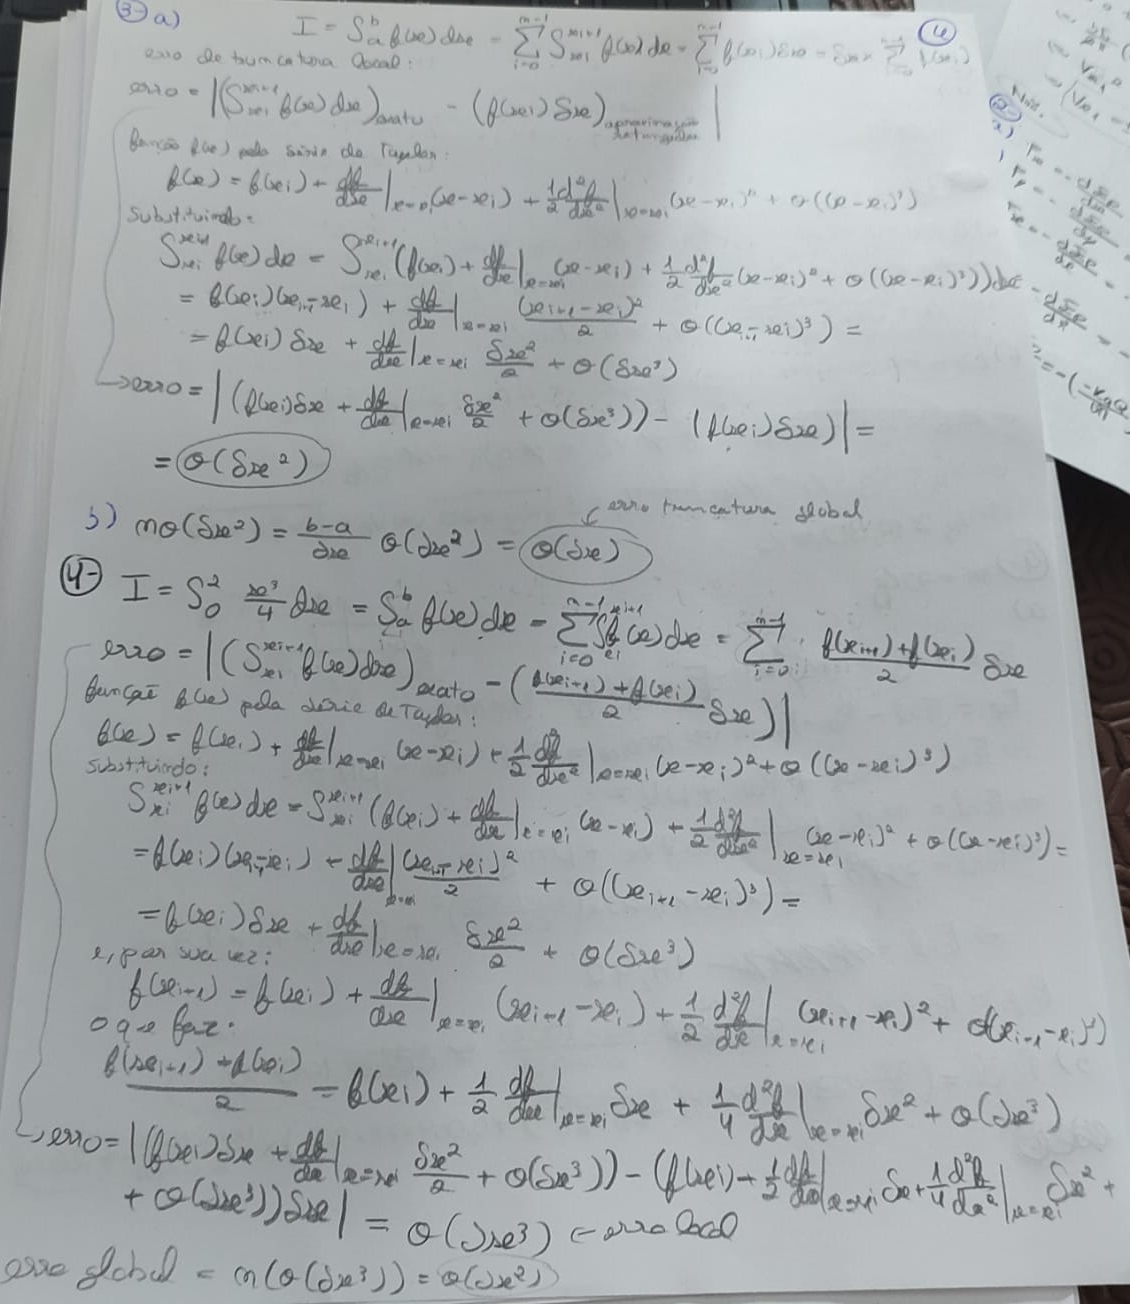 3- a) I = ∫_a^b f(x) dx = Σ_{i=0}^{n-1} ∫_{xi}^{xi+1} f(x) dx = Σ_{i=0}^{n-1} f(xi) δx = δx Σ f(xi)
4
erro de truncatura local:
erro = |(∫_{xi}^{xi+1} f(x) dx)_exato - (f(xi) δx)_aproximação retangular|
função f(x) pela série de Taylor:
f(x) = f(xi) + df/dx|_{x=xi} (x-xi) + 1/2 d²f/dx²|_{x=xi} (x-xi)² + O((x-xi)³)
substituindo:
∫_{xi}^{xi+1} f(x) dx = ∫_{xi}^{xi+1} (f(xi) + df/dx|_{x=xi} (x-xi) + 1/2 d²f/dx² (x-xi)² + O((x-xi)³)) dx
= f(xi)(xi+1-xi) + df/dx|_{x=xi} (xi+1-xi)²/2 + O((xi+1-xi)³) =
= f(xi) δx + df/dx|_{x=xi} δx²/2 + O(δx³)
→ erro = |(f(xi) δx + df/dx|_{x=xi} δx²/2 + O(δx³)) - (f(xi) δx)| =
= O(δx²)
← erro truncatura global
b) nO(δx²) = b-a/δx O(δx²) = O(δx)
4- I = ∫_0^2 x³/4 dx = ∫_a^b f(x) dx = Σ_{i=0}^{n-1} ∫_{xi}^{xi+1} f(x) dx = Σ_{i=0}^{n-1} f(xi+1)+f(xi)/2 δx
erro = |(∫_{xi}^{xi+1} f(x) dx)_exato - (f(xi+1)+f(xi)/2 δx)|
função f(x) pela série de Taylor:
f(x) = f(xi) + df/dx|_{x=xi} (x-xi) + 1/2 d²f/dx²|_{x=xi} (x-xi)² + O((x-xi)³)
substituindo:
∫_{xi}^{xi+1} f(x) dx = ∫_{xi}^{xi+1} (f(xi) + df/dx|_{x=xi} (x-xi) + 1/2 d²f/dx²|_{x=xi} (x-xi)² + O((x-xi)³) =
= f(xi)(xi+1-xi) + df/dx|_{x=xi} (xi+1-xi)²/2 + O((xi+1-xi)³) =
= f(xi) δx + df/dx|_{x=xi} δx²/2 + O(δx³)
e, por sua vez:
f(xi+1) = f(xi) + df/dx|_{x=xi} (xi+1-xi) + 1/2 d²f/dx|_{x=xi} (xi+1-xi)² + O(xi+1-xi)³)
o que faz:
f(xi+1)+f(xi)/2 = f(xi) + 1/2 df/dx|_{x=xi} δx + 1/4 d²f/dx|_{x=xi} δx² + O(δx³)
→ erro = |(f(xi) δx + df/dx|_{x=xi} δx²/2 + O(δx³)) - (f(xi) + 1/2 df/dx|_{x=xi} δx + 1/4 d²f/dx²|_{x=xi} δx² +
+ O(δx³)) δx| = O(δx³) ← erro local
erro global = n(O(δx³)) = O(δx²)